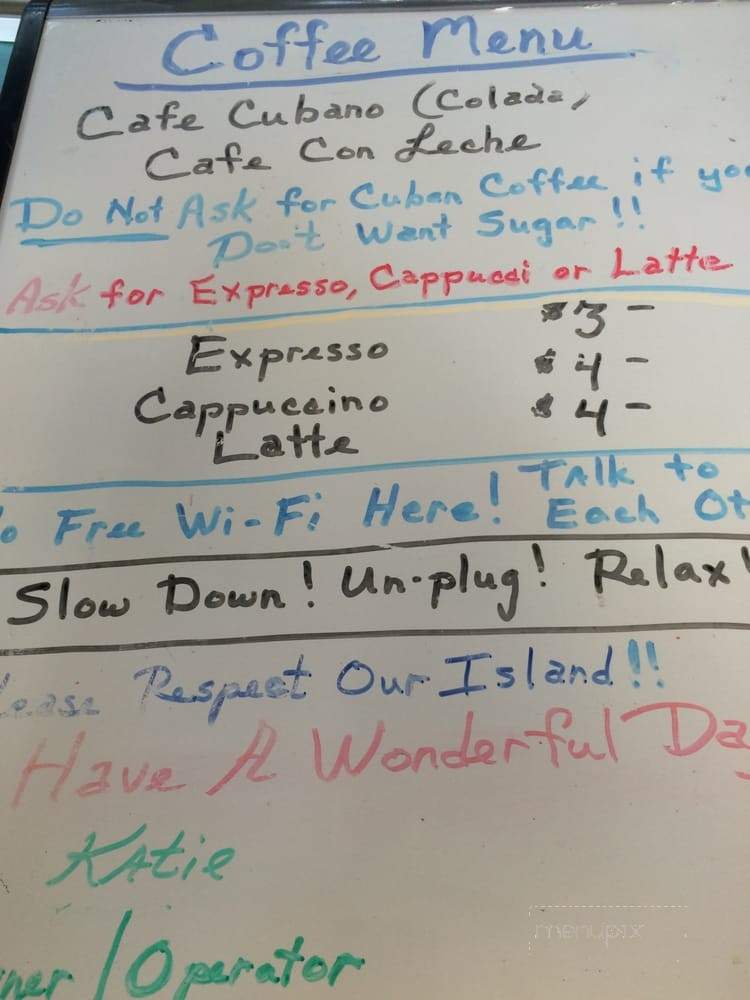 Coffee Menu
Cafe Cubano (Colada,
Cafe Con Leche
Do Not Ask for Cuban Coffee if you
Don't Want Sugar!!
Ask for Expresso, Cappucci or Latte
Expresso $3 –
Cappuccino $4 –
Latte $4 –
Free Wi-Fi Here! Talk to
Each Ot
Slow Down! Un-plug! Relax!
lease Respect Our Island!!
Have A Wonderful Day
Katie
ner/Operator
menupix